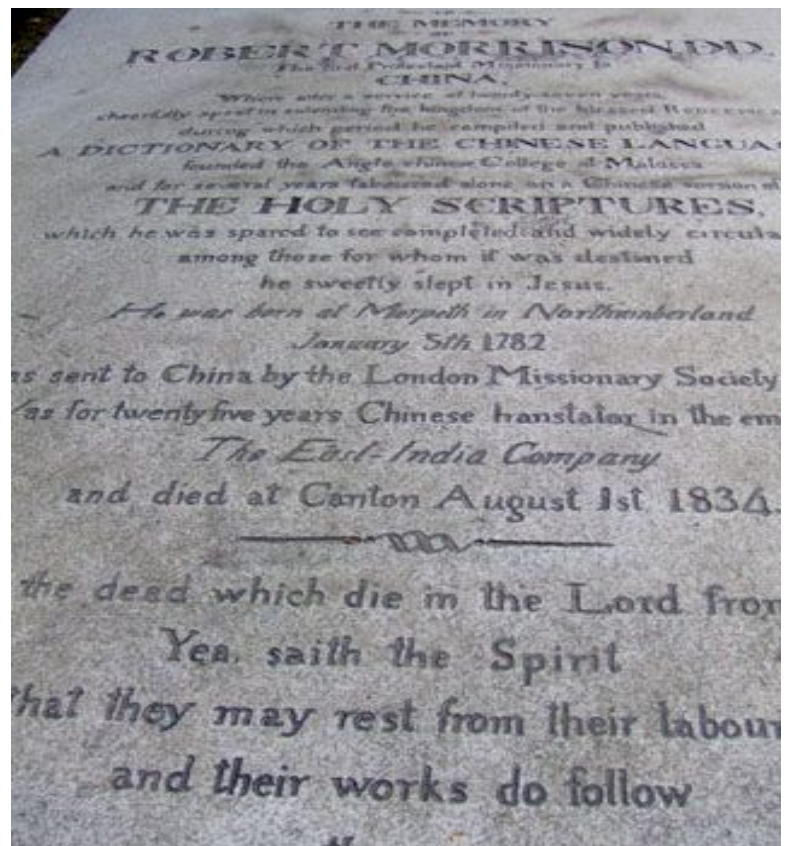 THE MEMORY
OF
ROBERT MORRISON, DD.
The first Protestant Missionary to
CHINA,
Where after a service of twenty-seven years,
cheerfully spent in extending the kingdom of the blessed REDEEMER
during which period he compiled and published
A DICTIONARY OF THE CHINESE LANGUA
founded the Anglo Chinese College at Malacca
and for several years laboured alone on a Chinese version of
THE HOLY SCRIPTURES,
which he was spared to see completed and widely circula
among those for whom it was destined
he sweetly slept in Jesus.
He was born at Morpeth in Northumberland
January 5th 1782
as sent to China by the London Missionary Society
Was for twenty five years Chinese translator in the em
The East-India Company
and died at Canton August 1st 1834.
the dead which die in the Lord from
Yea, saith the Spirit
that they may rest from their labour
and their works do follow